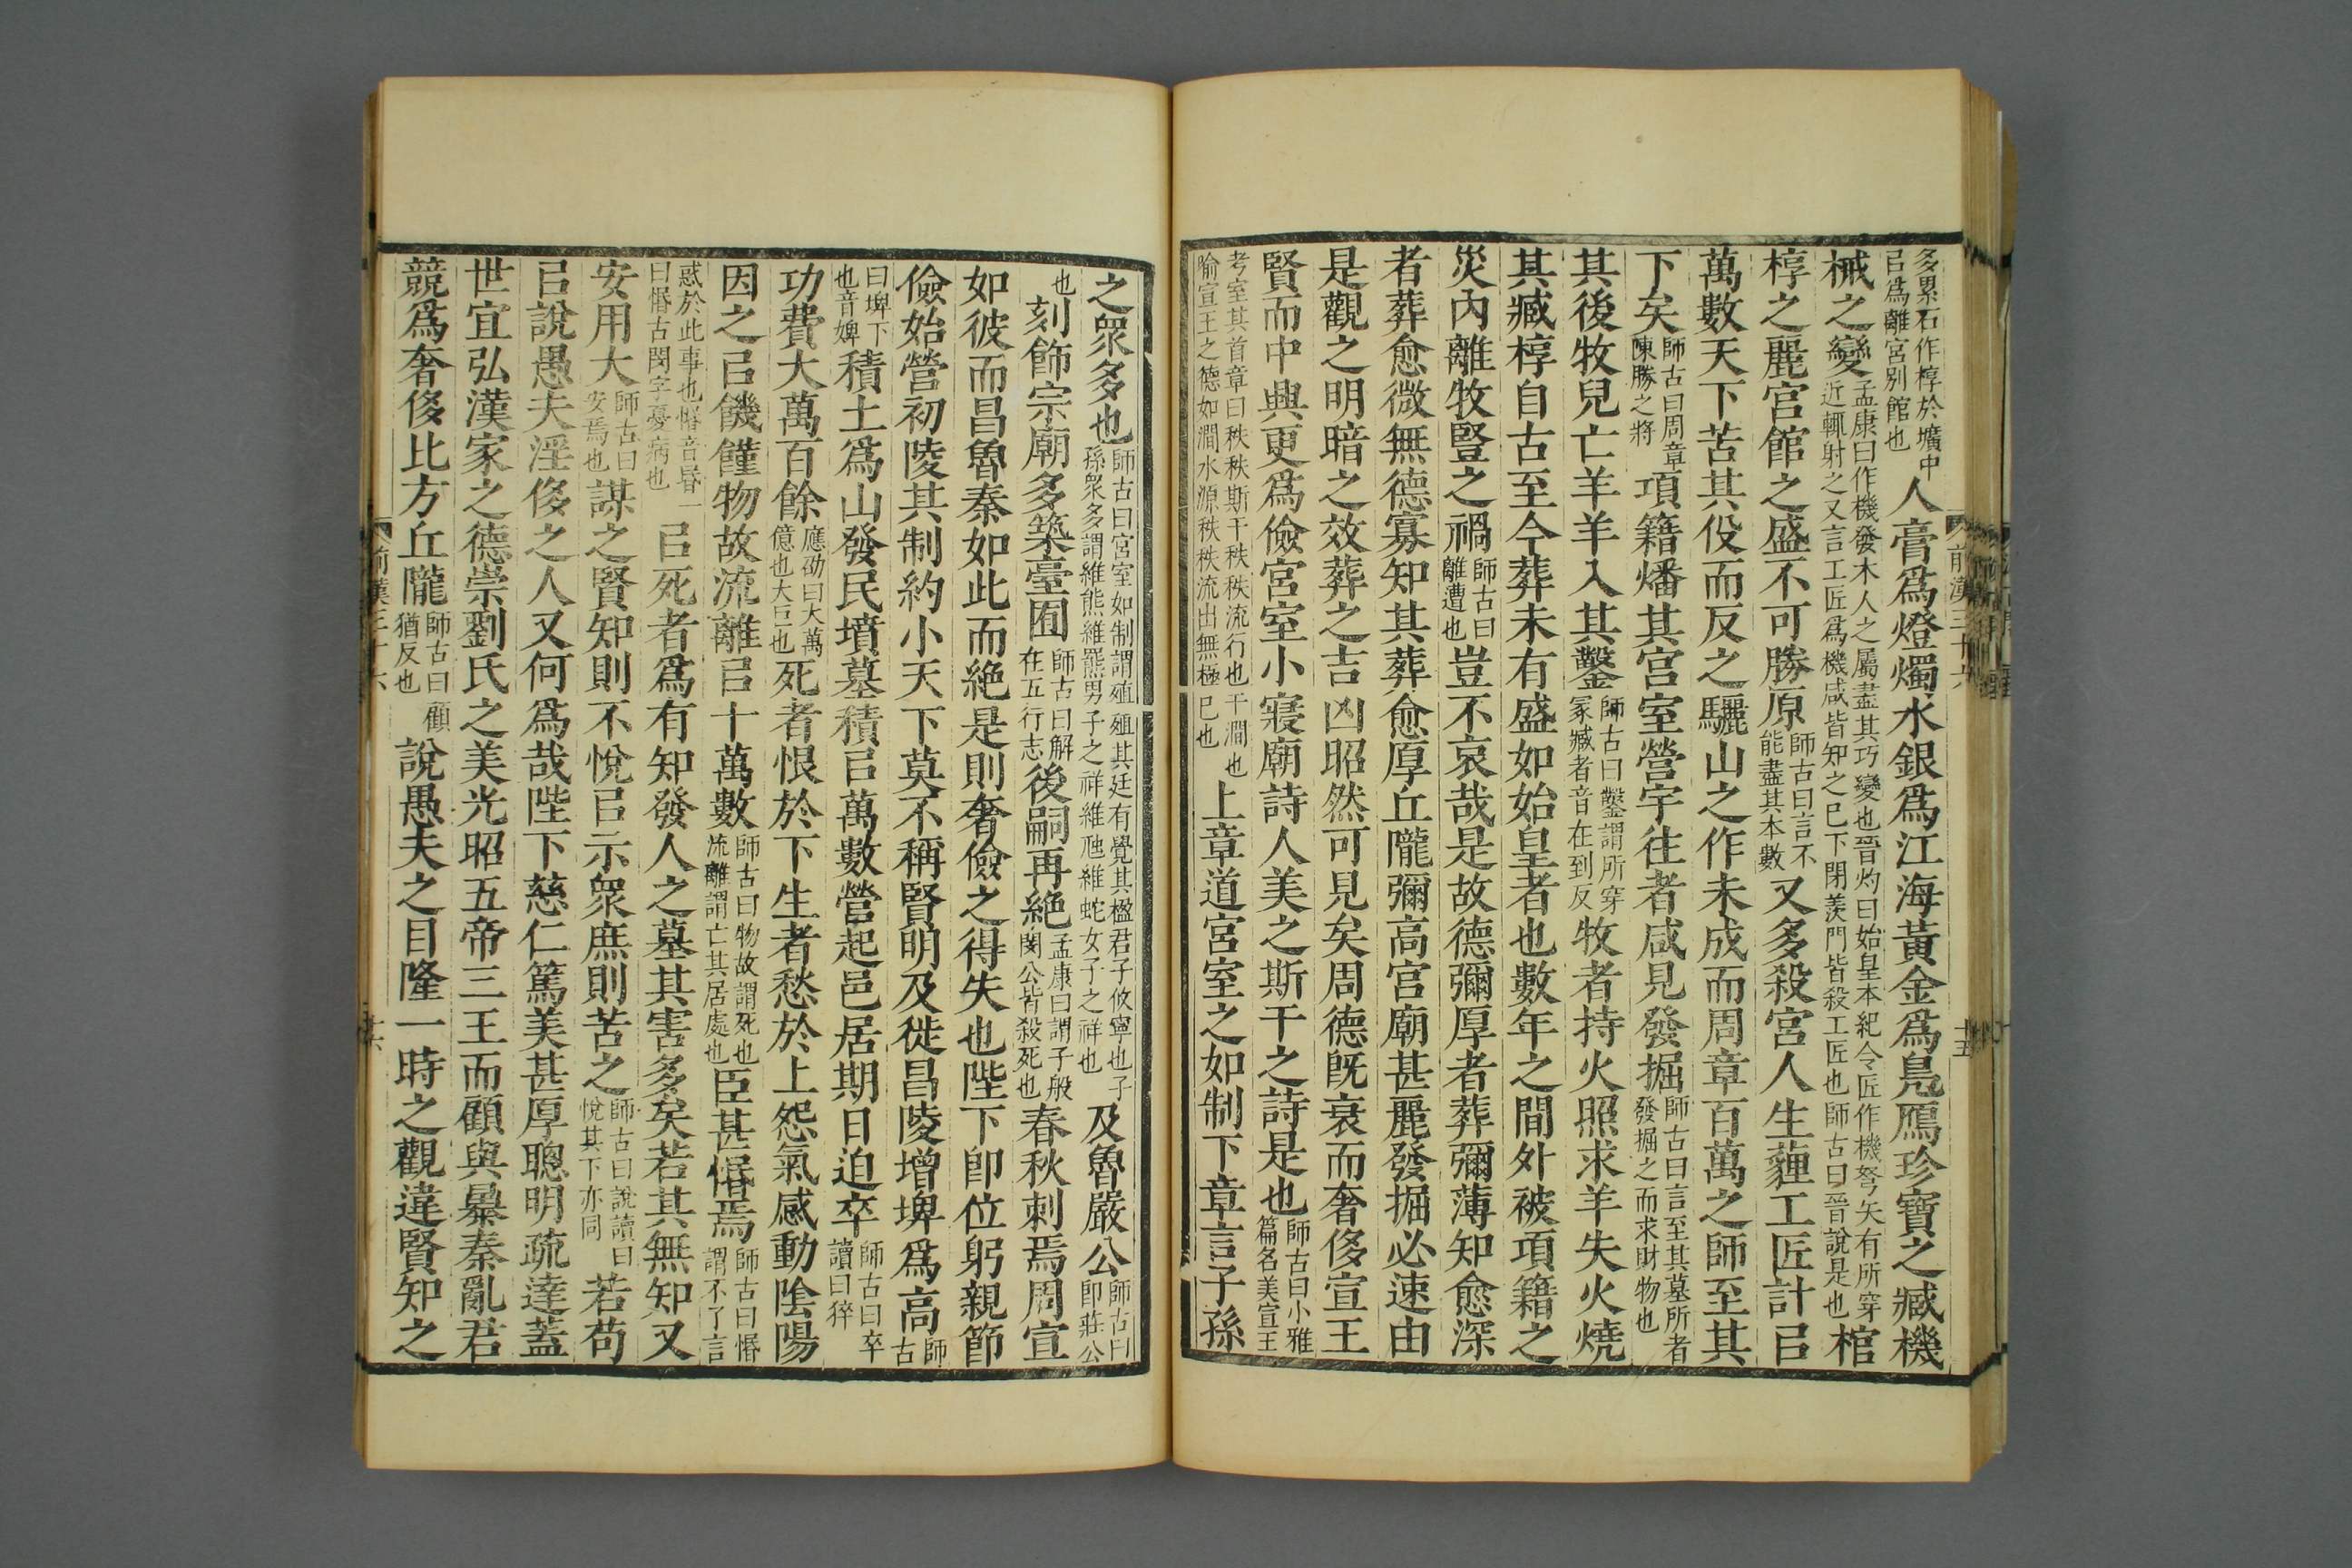 多累石作椁於壙中㠯爲離宮別館也人膏爲燈燭水銀爲江海黃金爲鳧鴈珍寶之臧機
械之變孟康曰作機發木人之屬盡其巧變也晉灼曰始皇本紀令匠作機弩矢有所穿近輒射之又言工匠爲機咸皆知之已下閉羨門皆殺工匠也師古曰晉說是也棺
椁之麗宮館之盛不可勝原師古曰言不能盡其本數又多殺宮人生薶工匠計㠯
萬數天下苦其役而反之驪山之作未成而周章百萬之師至其
下矣師古曰周章陳勝之將項籍燔其宮室營宇往者咸見發掘師古曰言至其墓所者發掘之而求財物也
其後牧兒亡羊羊入其鑿師古曰鑿謂所穿冢臧者音在到反牧者持火照求羊失火燒
其臧椁自古至今葬未有盛如始皇者也數年之間外被項籍之
災內離牧豎之禍師古曰離遭也豈不哀哉是故德彌厚者葬彌薄知愈深
者葬愈微無德寡知其葬愈厚丘隴彌高宮廟甚麗發掘必速由
是觀之明暗之效葬之吉凶昭然可見矣周德既衰而奢侈宣王
賢而中興更爲儉宮室小寢廟詩人美之斯干之詩是也師古曰小雅篇名美宣王
考室其首章曰秩秩斯干秩秩流行也干澗也喻宣王之德如澗水源秩秩流出無極已也上章道宮室之如制下章言子孫
前漢三十六
十五
之衆多也師古曰宮室如制謂殖殖其廷有覺其楹君子攸寧也子孫衆多謂維熊維羆男子之祥維虺維蛇女子之祥也及魯嚴公師古曰即莊公
也刻飾宗廟多築臺囿師古曰解在五行志後嗣再絕孟康曰謂子般閔公皆殺死也春秋刺焉周宣
如彼而昌魯秦如此而絕是則奢儉之得失也陛下即位躬親節
儉始營初陵其制約小天下莫不稱賢明及徙昌陵增埤爲高師古
曰埤下也音婢積土爲山發民墳墓積㠯萬數營起邑居期日迫卒師古曰卒讀曰猝
功費大萬百餘應劭曰大萬億也大巨也死者恨於下生者愁於上怨氣感動陰陽
因之㠯饑饉物故流離㠯十萬數師古曰物故謂死也流離謂亡其居處也臣甚惽焉師古曰惽謂不了言
惑於此事也惽音昏一曰惽古閔字憂病也㠯死者爲有知發人之墓其害多矣若其無知又
安用大師古曰安焉也謀之賢知則不悅㠯示衆庶則苦之師古曰說讀曰悅其下亦同若苟
㠯說愚夫淫侈之人又何爲哉陛下慈仁篤美甚厚聰明疏達蓋
世宜弘漢家之德崇劉氏之美光昭五帝三王而顧與暴秦亂君
競爲奢侈比方丘隴師古曰顧猶反也說愚夫之目隆一時之觀違賢知之
前漢三十六
十六